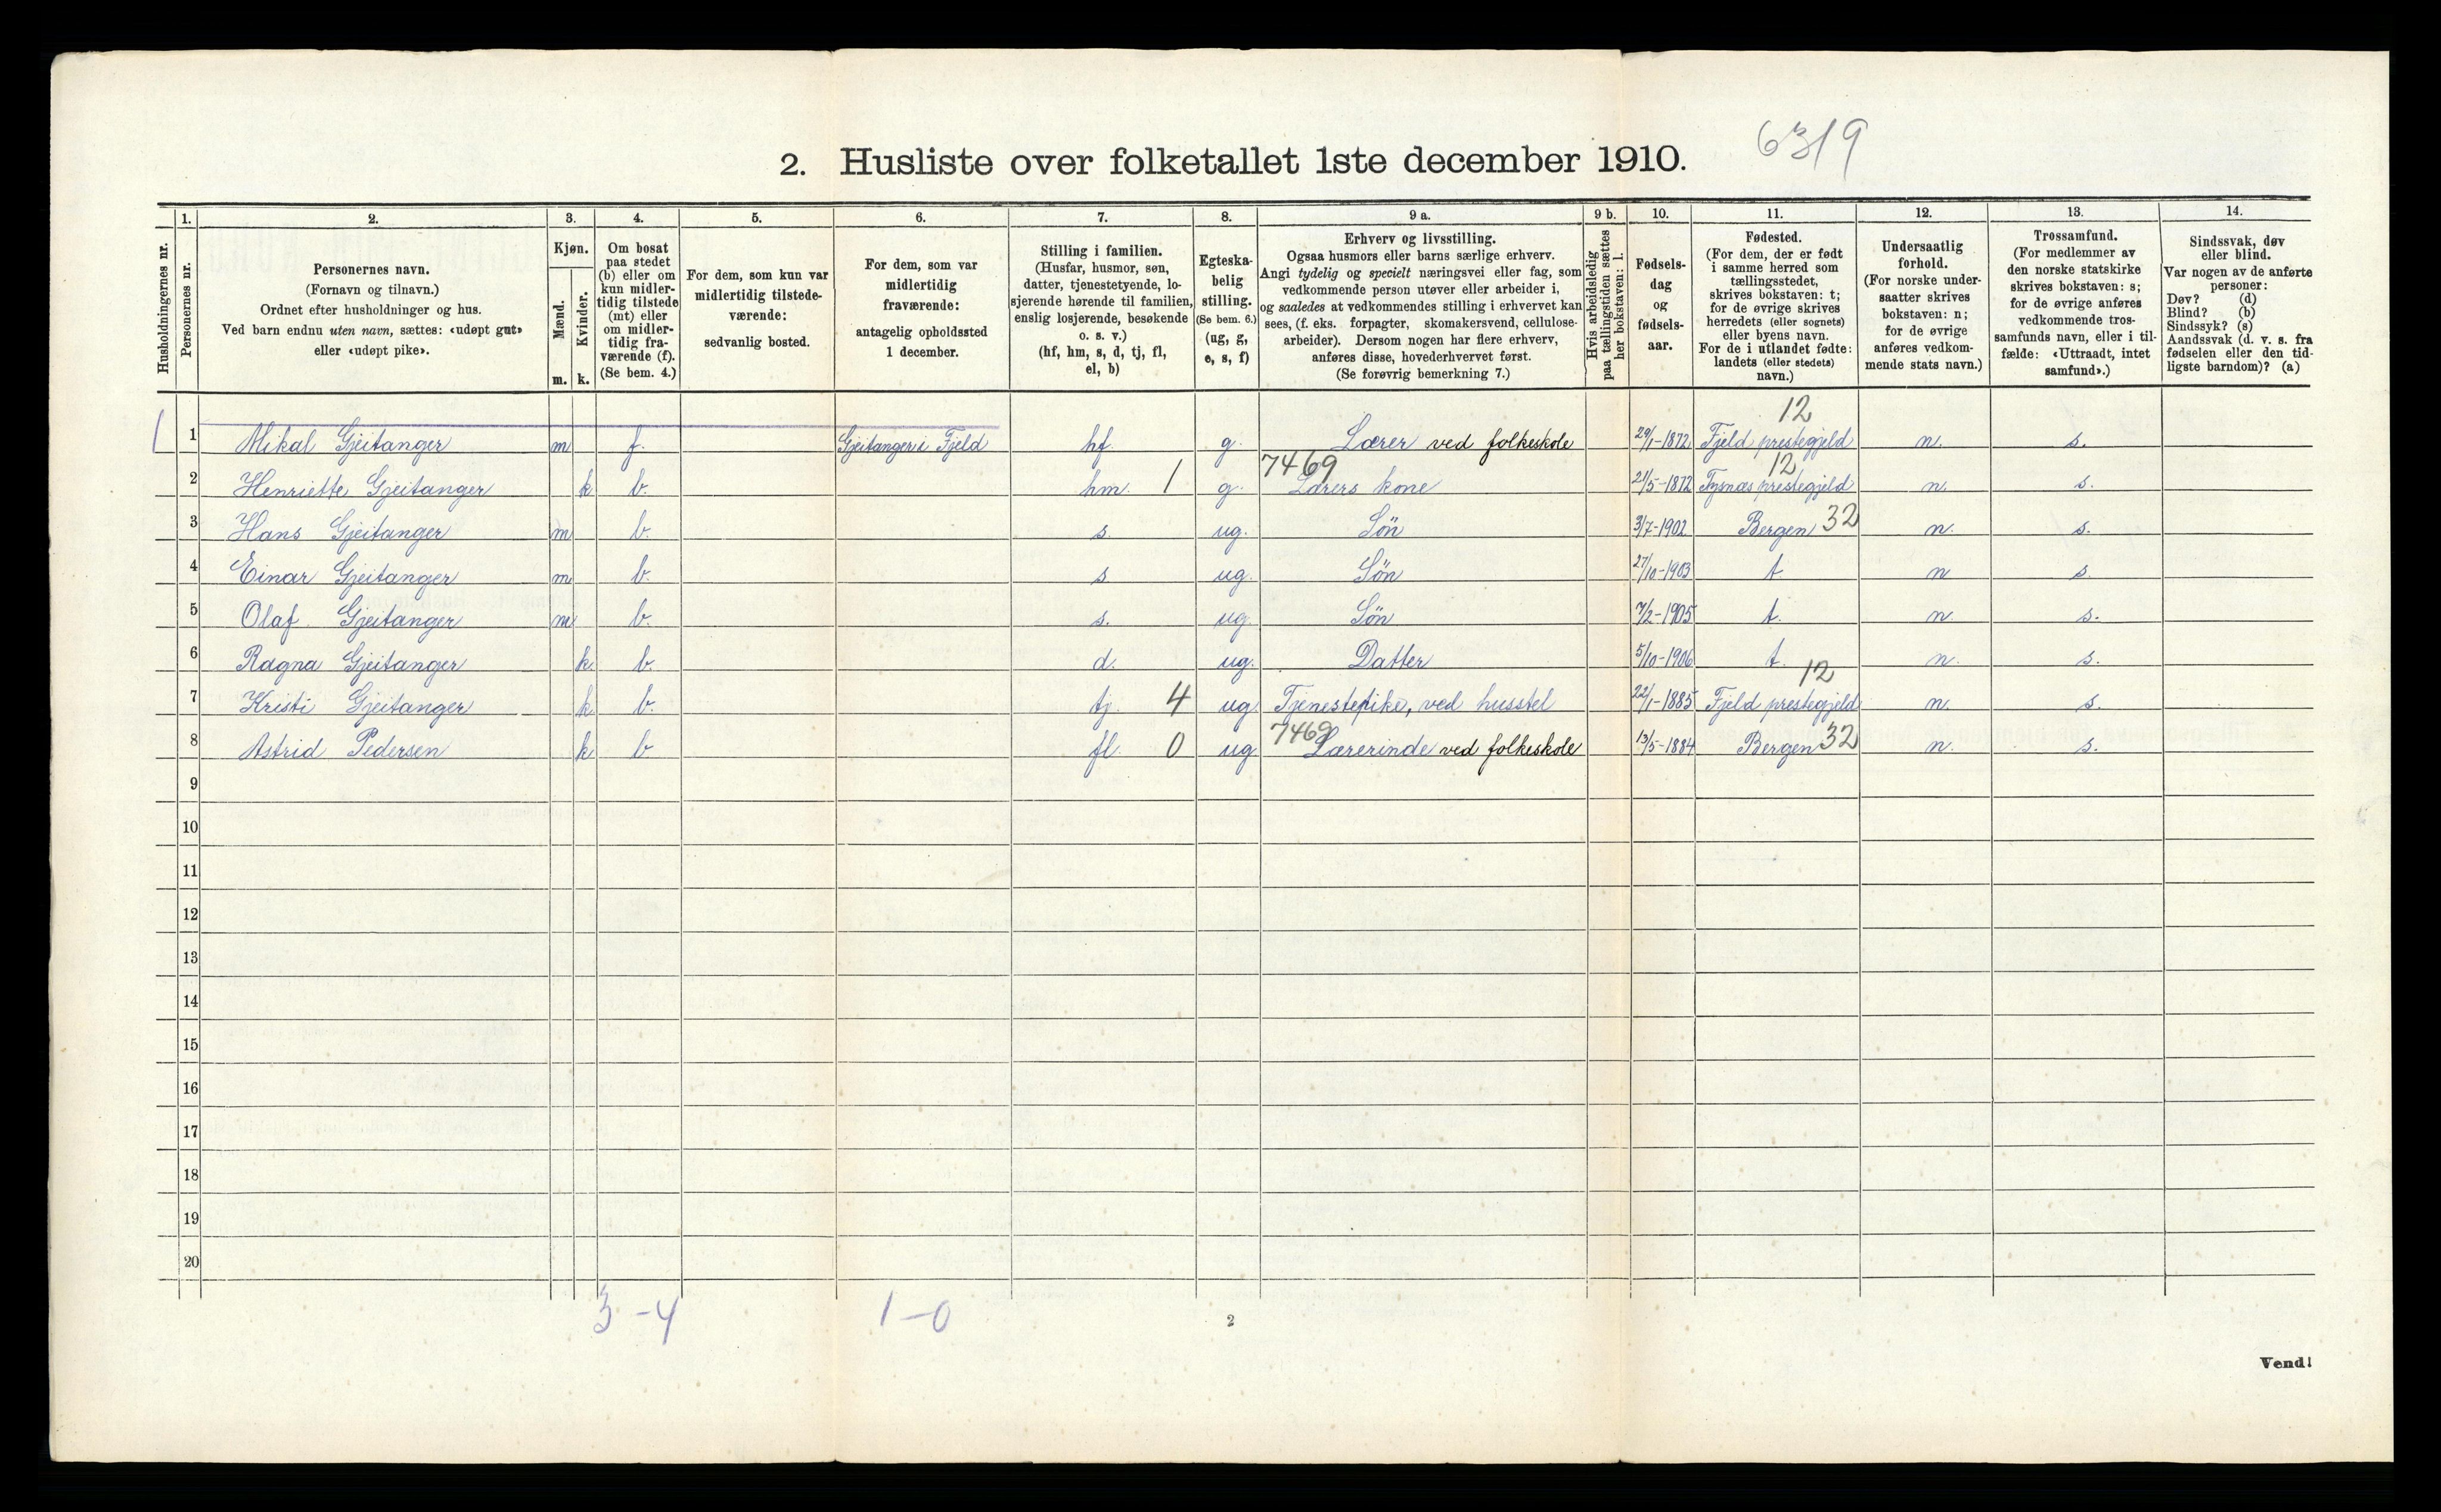 6319
2. Husliste over folketallet 1ste december 1910.
Husholdningernes nr.
1.
Personernes nr.
2.
Personernes navn.
(Fornavn og tilnavn.)
Ordnet efter husholdninger og hus.
Ved barn endnu uten navn, sættes: «udøpt gut»
eller «udøpt pike».
3.
Kjøn.
Mænd.
Kvinder.
m. k.
4.
Om bosat
paa stedet
(b) eller om
kun midler-
tidig tilstede
(mt) eller
om midler-
tidig fra-
værende (f).
(Se bem. 4.)
5.
For dem, som kun var
midlertidig tilstede-
værende:
sedvanlig bosted.
6.
For dem, som var
midlertidig
fraværende:
antagelig opholdssted
1 december.
7.
Stilling i familien.
(Husfar, husmor, søn,
datter, tjenestetyende, lo-
sjerende hørende til familien,
enslig losjerende, besøkende
o. s. v.)
(hf, hm, s, d, tj, fl,
el, b)
8.
Egteska-
belig
stilling.
(Se bem. 6.)
(ug, g,
e, s, f)
9 a.
Erhverv og livsstilling.
Ogsaa husmors eller barns særlige erhverv.
Angi tydelig og specielt næringsvei eller fag, som
vedkommende person utøver eller arbeider i,
og saaledes at vedkommendes stilling i erhvervet kan
sees, (f. eks. forpagter, skomakersvend, cellulose-
arbeider). Dersom nogen har flere erhverv,
anføres disse, hovederhvervet først.
(Se forøvrig bemerkning 7.)
9 b.
Hvis arbeidsledig
paa tællingstiden sættes
her bokstaven: l.
10.
Fødsels-
dag
og
fødsels-
aar.
11.
Fødested.
(For dem, der er født
i samme herred som
tællingsstedet,
skrives bokstaven: t;
for de øvrige skrives
herredets (eller sognets)
eller byens navn.
For de i utlandet fødte:
landets (eller stedets)
navn.)
12.
Undersaatlig
forhold.
(For norske under-
saatter skrives
bokstaven: n;
for de øvrige
anføres vedkom-
mende stats navn.)
13.
Trossamfund.
(For medlemmer av
den norske statskirke
skrives bokstaven: s;
for de øvrige anføres
vedkommende tros-
samfunds navn, eller i til-
fælde: «Uttraadt, intet
samfund».)
14.
Sindssvak, døv
eller blind.
Var nogen av de anførte
personer:
Døv? (d)
Blind? (b)
Sindssyk? (s)
Aandssvak (d. v. s. fra
fødselen eller den tid-
ligste barndom)? (a)
12
1 1 Mikal Gjeitanger m f. Gjeitanger i Fjeld hf. g. Lærer ved folkeskole 29/1-1872 Fjeld prestegjeld n. s.
7469 12
2 Henriette Gjeitanger k b. hm. 1 g. Lærers kone 21/5-1872 Tysnæs prestegjeld n. s.
3 Hans Gjeitanger m b. s. ug. Søn 3/7-1902 Bergen 32 n. s.
4 Einar Gjeitanger m b. s. ug. Søn 27/10-1903 t. n s.
5 Olaf Gjeitanger m b. s. ug. Søn 7/2-1905 t. n. s.
6 Ragna Gjeitanger k b. d. ug. Datter 5/10-1906 t. n. s.
12
7 Kristi Gjeitanger k b. tj. 4 ug. Tjenestepike, ved husstel 22/1-1885 Fjeld prestegjeld n. s.
7469
8 Astrid Pedersen k b fl. 0 ug Lærerinde ved folkeskole 13/5-1884 Bergen 32 n. s.
9
10
11
12
13
14
15
16
17
18
19
20
3-4 1-0
2
Vend!